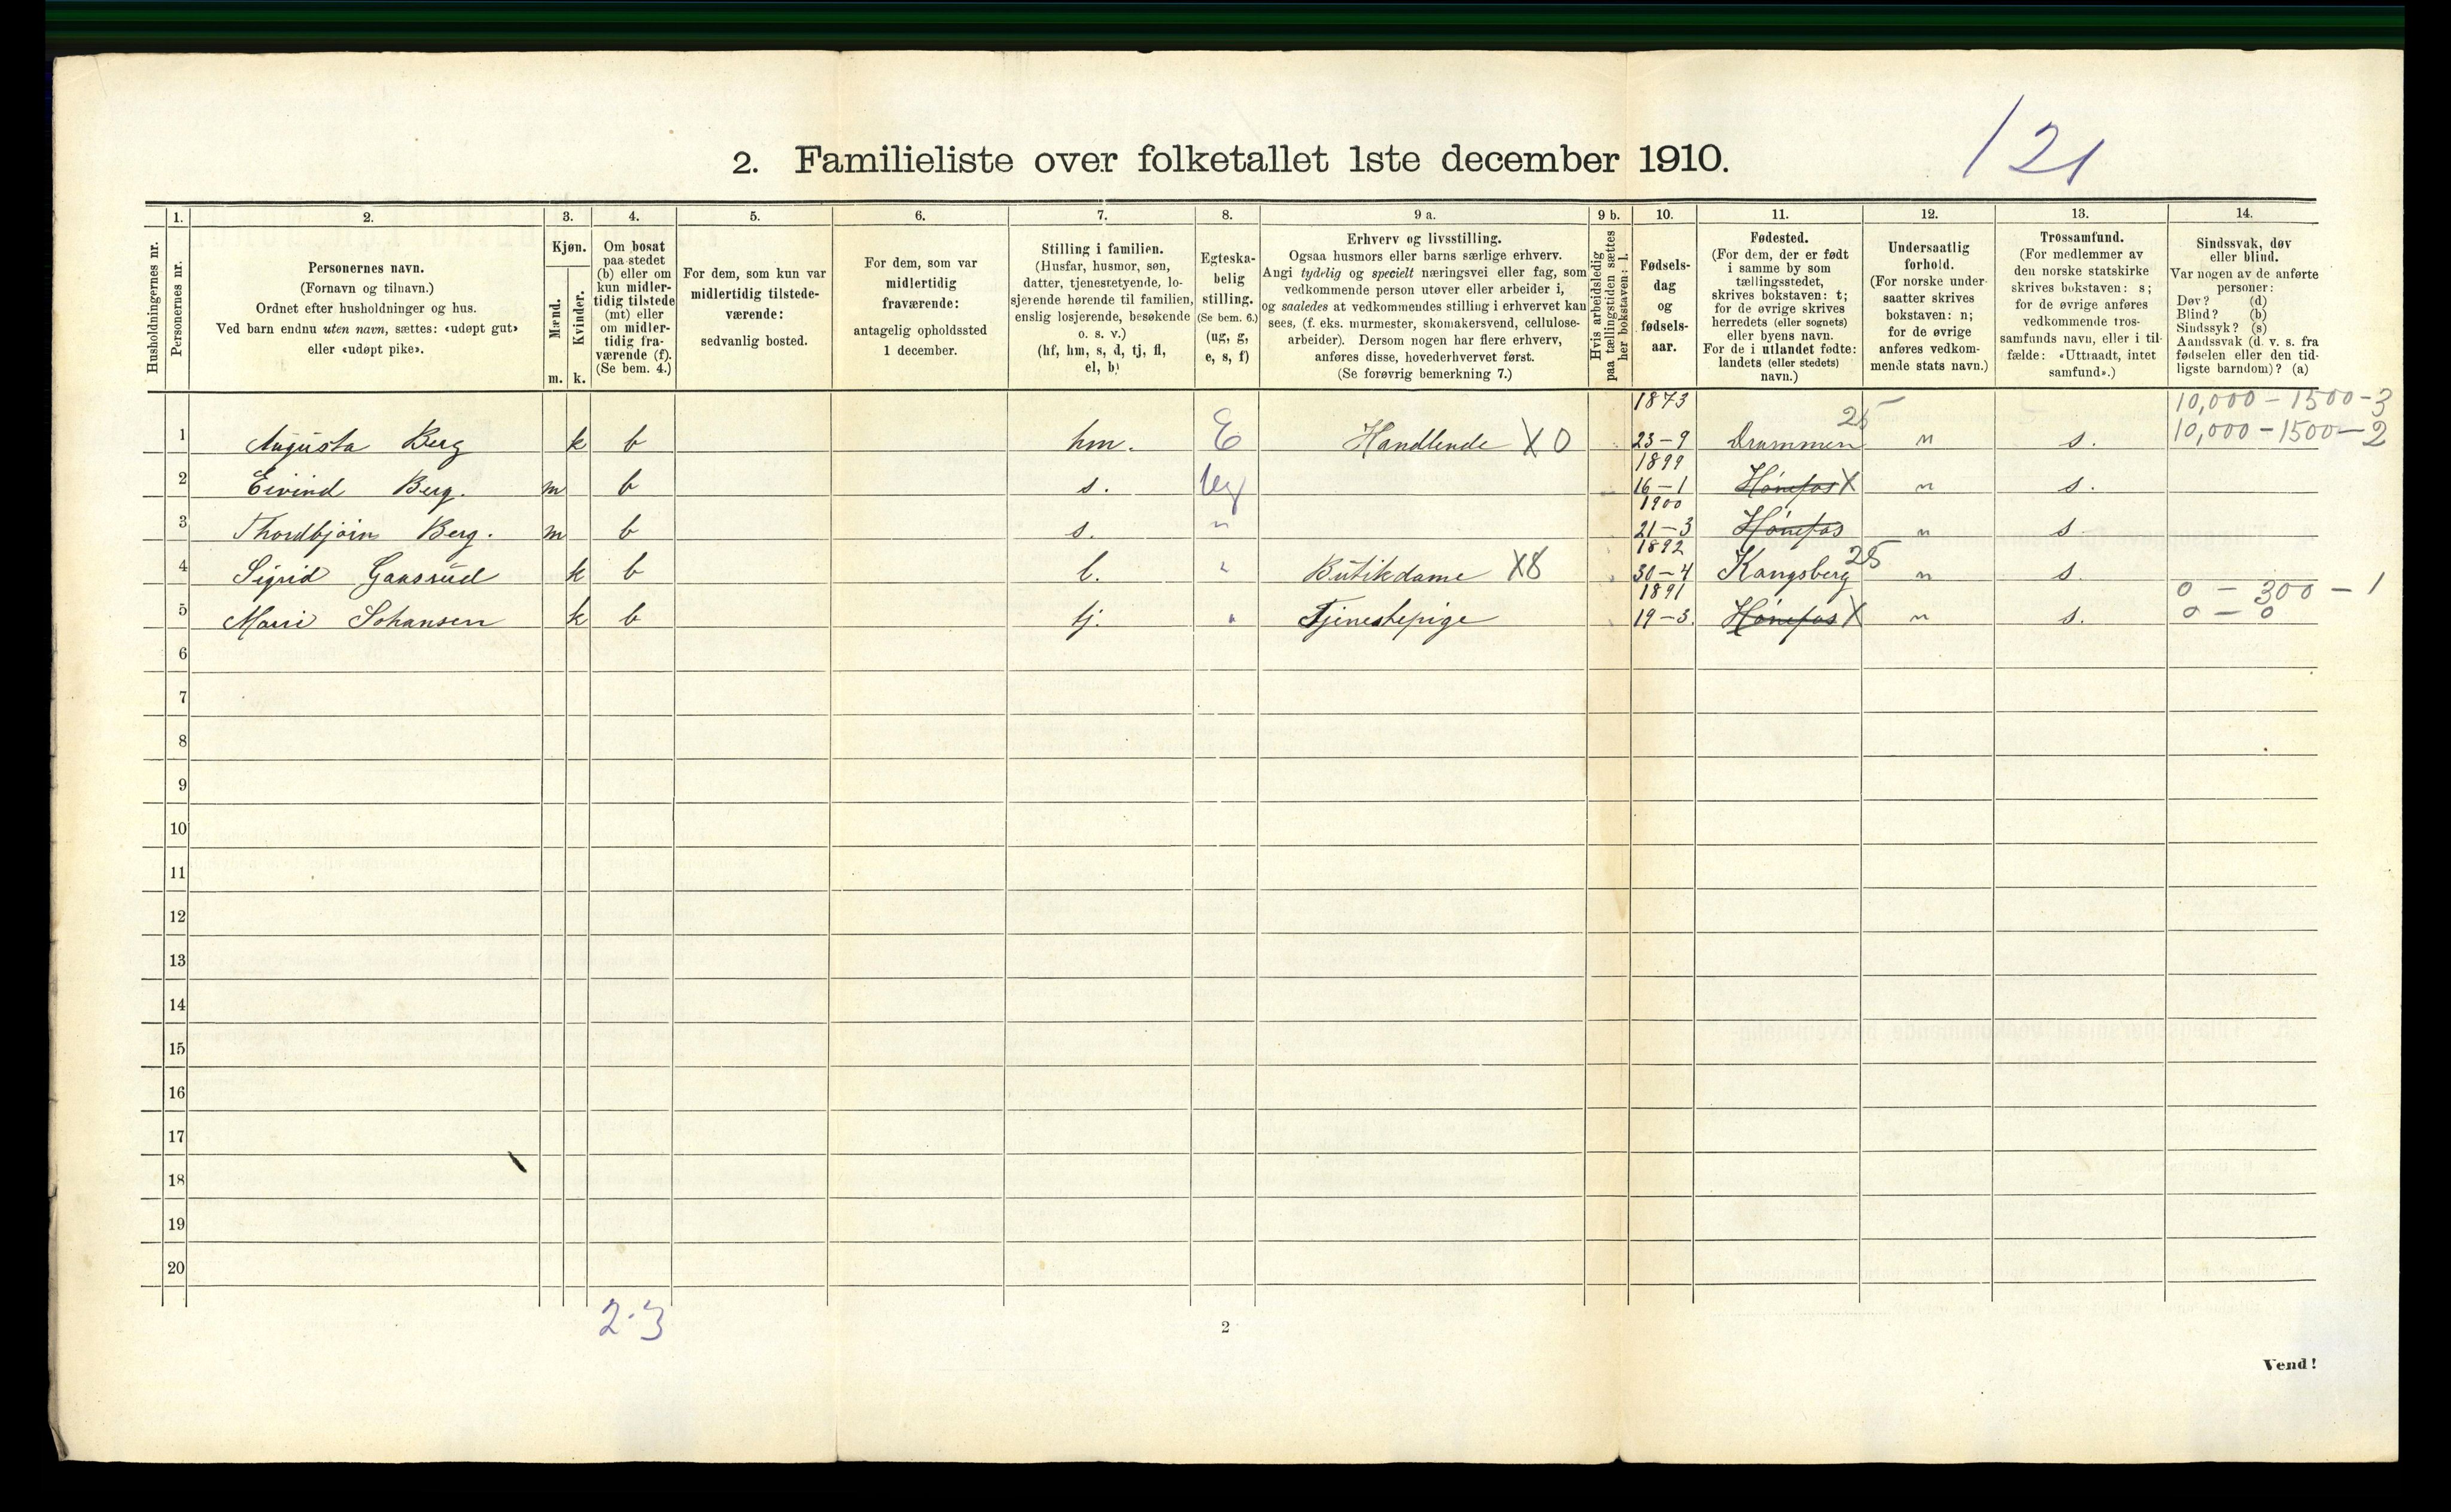 121
2. Familieliste over folketallet 1ste december 1910.
1. 2. 3. 4. 5. 6. 7. 8. 9 a. 9 b. 10. 11. 12. 13. 14.
Husholdningernes nr.
Personernes nr.
Personernes navn.
(Fornavn og tilnavn.)
Ordnet efter husholdninger og hus.
Ved barn endnu uten navn, sættes: «udøpt gut»
eller «udøpt pike».
Kjøn.
Mænd.
Kvinder.
m. k.
Om bosat
paa stedet
(b) eller om
kun midler-
tidig tilstede
(mt) eller
om midler-
tidig fra-
værende (f).
(Se bem. 4.)
For dem, som kun var
midlertidig tilstede-
værende:
sedvanlig bosted.
For dem, som var
midlertidig
fraværende:
antagelig opholdssted
1 december.
Stilling i familien.
(Husfar, husmor, søn,
datter, tjenestetyende, lo-
sjerende hørende til familien,
enslig losjerende, besøkende
o. s. v.)
(hf, hm, s, d, tj, fl,
el, b)
Egteska-
belig
stilling.
(Se bem. 6.)
(ug, g,
e, s, f)
Erhverv og livsstilling.
Ogsaa husmors eller barns særlige erhverv.
Angi tydelig og specielt næringsvei eller fag, som
vedkommende person utøver eller arbeider i,
og saaledes at vedkommendes stilling i erhvervet kan
sees, (f. eks. murmester, skomakersvend, cellulose-
arbeider). Dersom nogen har flere erhverv,
anføres disse, hovederhvervet først.
(Se forøvrig bemerkning 7.)
Hvis arbeidsledig
paa tællingstiden sættes
her bokstaven: l.
Fødsels-
dag
og
fødsels-
aar.
Fødested.
(For dem, der er født
i samme by som
tællingsstedet,
skrives bokstaven: t;
for de øvrige skrives
herredets (eller sognets)
eller byens navn.
For de i utlandet fødte:
landets (eller stedets)
navn.)
Undersaatlig
forhold.
(For norske under-
saatter skrives
bokstaven: n;
for de øvrige
anføres vedkom-
mende stats navn.)
Trossamfund.
(For medlemmer av
den norske statskirke
skrives bokstaven: s;
for de øvrige anføres
vedkommende tros-
samfunds navn, eller i til-
fælde: «Uttraadt, intet
samfund».)
Sindssvak, døv
eller blind.
Var nogen av de anførte
personer:
Døv? (d)
Blind? (b)
Sindssyk? (s)
Aandssvak (d. v. s. fra
fødselen eller den tid-
ligste barndom)? (a)
1873 25 10,000 - 1500 - 3
1 Augusta Berg k b hm. E Handlende X 0 23-9 Drammen n s. 10,000 - 1500 - 2
1899
2 Eivind Berg. m b s. ug 16-1 Hønefos X n s.
1900
3 Thordbjørn Berg. m b s. " 21-3 Hønefos n s.
1892 25
4 Sigrid Gaasrud k b b. " Butikdame X8 30-4 Kongsberg n s.
1891 0 - 300 - 1
5 Marie Johansen k b tj. " Tjenestepige 19-3. Hønefos X n s. 0 - 0
6
7
8
9
10
11
12
13
14
15
16
17
18
19
20
2·3
2
Vend!